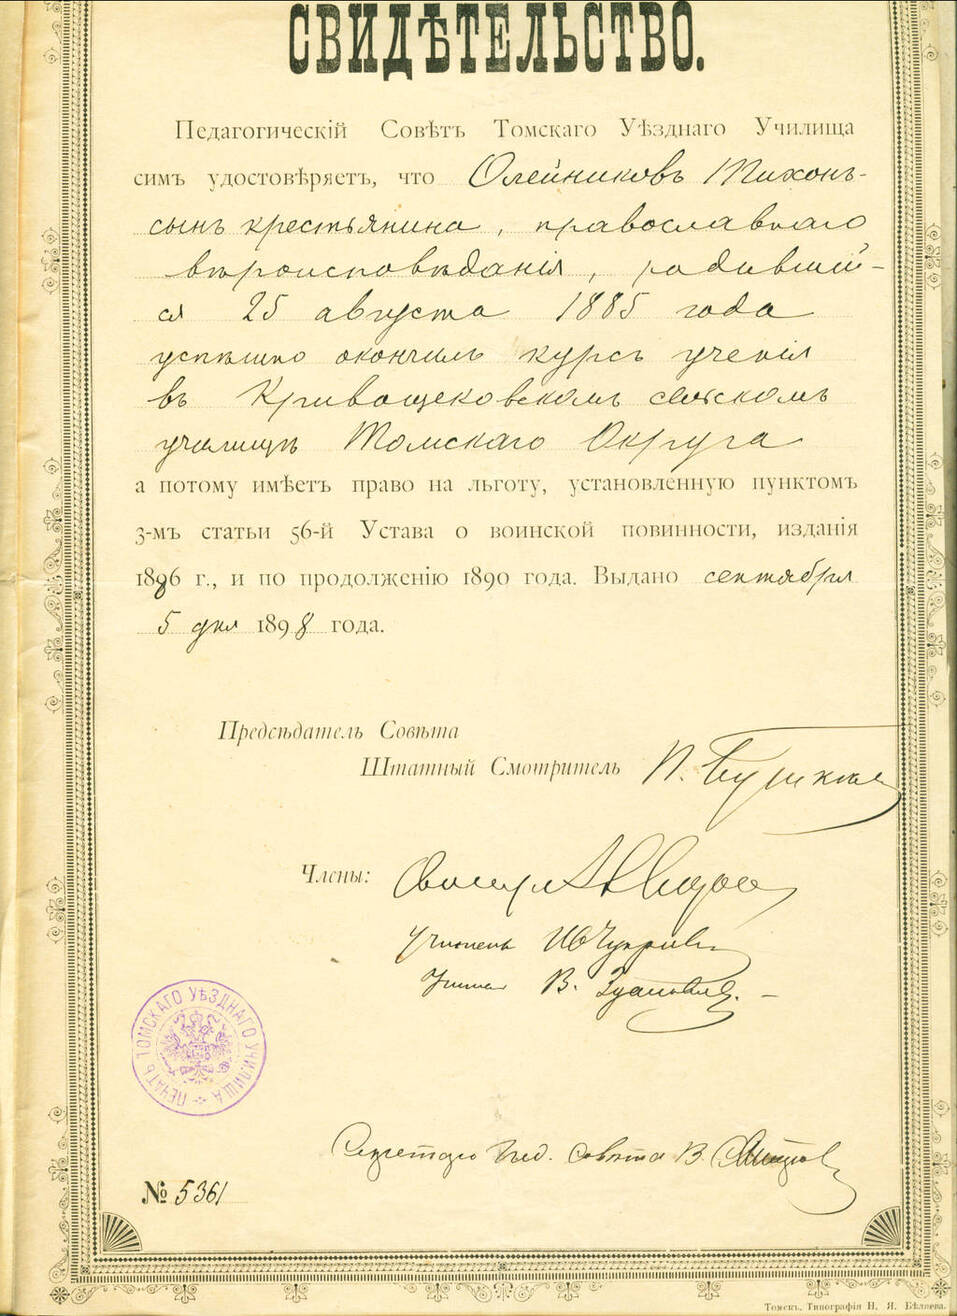 СВИДѢТЕЛЬСТВО.
Педагогическій Совѣтъ Томскаго Уѣзднаго Училища
симъ удостовѣряетъ, что Олейниковъ Тихонъ-
сынъ крестьянина, православнаго
вѣроисповѣданія, родивший-
ся 25 августа 1885 года
успѣшно окончилъ курсъ ученія
въ Кривощековскомъ сельскомъ
училищѣ Томскаго Округа
а потому имѣетъ право на льготу, установленную пунктомъ
3-мъ статьи 56-й Устава о воинской повинности, изданія
1886 г., и по продолженію 1890 года. Выдано сентября
5 дня 1898 года.
Предсѣдатель Совѣта
Штатный Смотритель П.
Члены:
Учитель
В.
ПЕЧАТЬ ТОМСКАГО УѢЗДНАГО УЧИЛИЩА
Секретарь Пед. совѣта В.
№ 5361
Томскъ, Типографія Н. Я. Бѣляева.